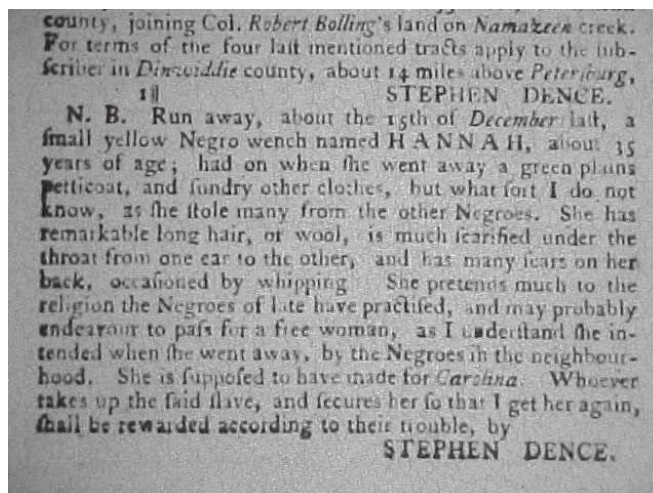 county, joining Col. Robert Bolling's land on Namazeen creek.
For terms of the four laſt mentioned tracts apply to the ſub-
ſcriber in Dinwiddie county, about 14 miles above Peterſburg,
STEPHEN DENCE.
N. B. Run away, about the 15th of December laſt, a
ſmall yellow Negro wench named HANNAH, about 35
years of age; had on when ſhe went away a green plains
petticoat, and ſundry other clothes, but what ſort I do not
know, as ſhe ſtole many from the other Negroes. She has
remarkable long hair, or wool, is much ſcarified under the
throat from one ear to the other, and has many ſcars on her
back, occaſioned by whipping. She pretends much to the
religion the Negroes of late have practiſed, and may probably
endeavour to paſs for a free woman, as I underſtand ſhe in-
tended when ſhe went away, by the Negroes in the neighbour-
hood. She is ſuppoſed to have made for Carolina. Whoever
takes up the ſaid ſlave, and ſecures her ſo that I get her again,
ſhall be rewarded according to their trouble, by
STEPHEN DENCE.